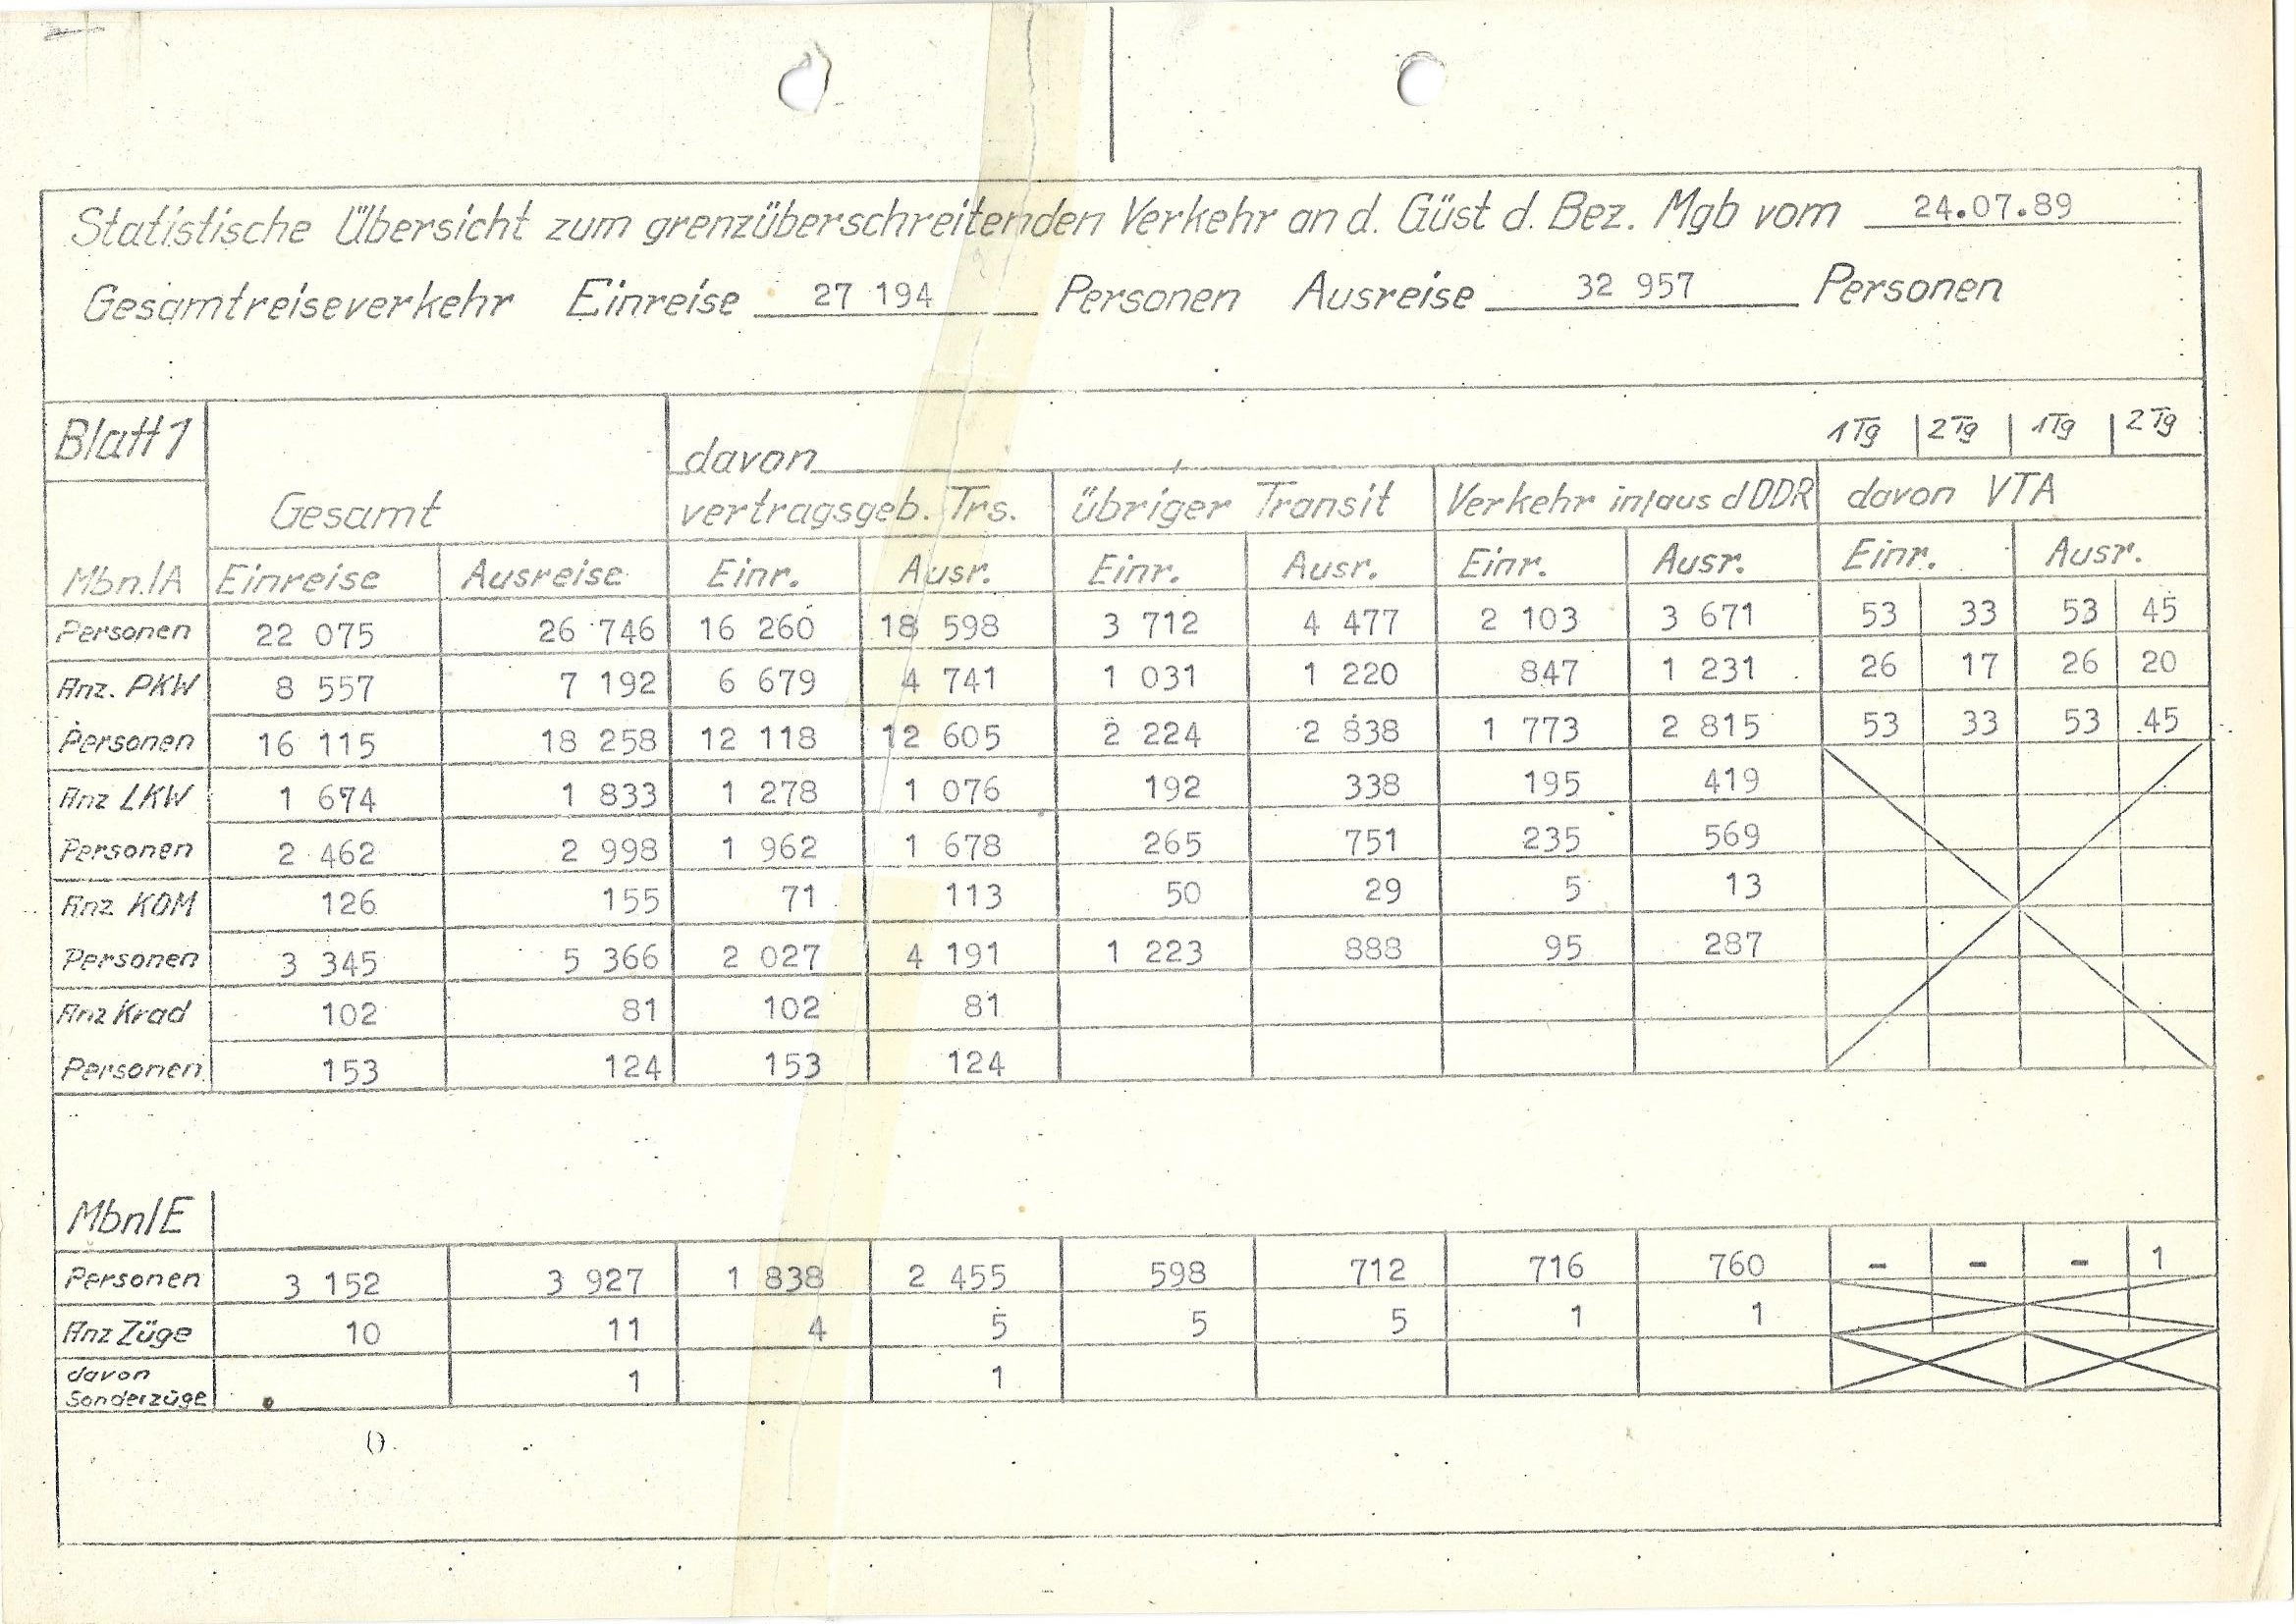 Statistische Übersicht zum grenzüberschreitenden Verkehr an d. Güst d. Bez. Mgb vom 24.07.89
Gesamtreiseverkehr Einreise 27 194 Personen Ausreise 32 957 Personen
Blatt 1 davon 1 Tg 2 Tg 1 Tg 2 Tg
Gesamt vertragsgeb. Trs. übriger Transit Verkehr in/aus d DDR davon VTA
Mbn./A Einreise Ausreise Einr. Ausr. Einr. Ausr. Einr. Ausr. Einr. Ausr.
Personen 22 075 26 746 16 260 18 598 3 712 4 477 2 103 3 671 53 33 53 45
Anz. PKW 8 557 7 192 6 679 4 741 1 031 1 220 847 1 231 26 17 26 20
Personen 16 115 18 258 12 118 12 605 2 224 2 838 1 773 2 815 53 33 53 45
Anz LKW 1 674 1 833 1 278 1 076 192 338 195 419
Personen 2 462 2 998 1 962 1 678 265 751 235 569
Anz KOM 126 155 71 113 50 29 5 13
Personen 3 345 5 366 2 027 4 191 1 223 888 95 287
Anz Krad 102 81 102 81
Personen 153 124 153 124
Mbn/E
Personen 3 152 3 927 1 838 2 455 598 712 716 760 - - - 1
Anz Züge 10 11 4 5 5 5 1 1
davon
Sonderzüge 1 1